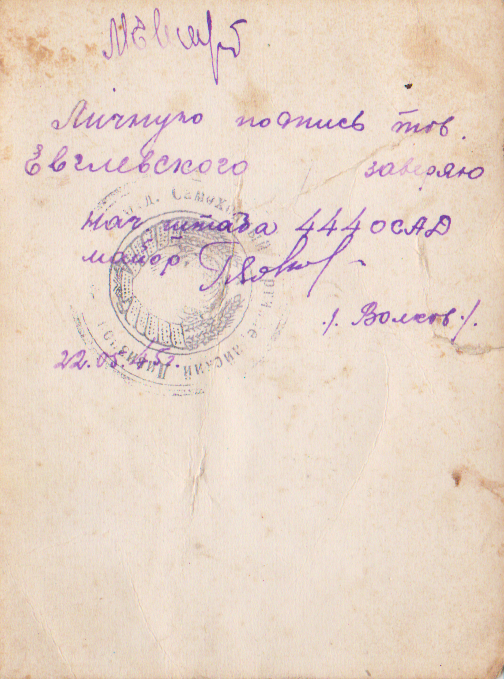 Личную подпись тов.
Евглевского заверяю
нач штаба 444 ОСАД
майор
/. Волков ./.
22.05.45г.